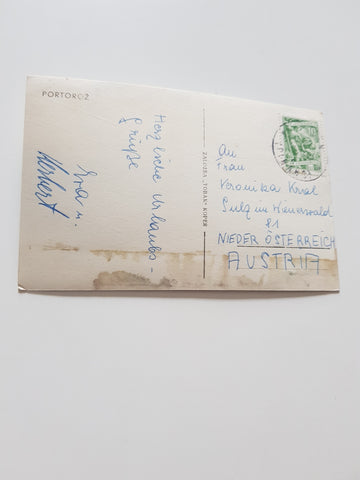 PORTOROŽ
Herzliche Urlaubs-
Grüße
Herbert
ZALOŽBA „LIPA" KOPER
An
Frau
Veronika
Sulz im Wienerwald
81
NIEDER ÖSTERREICH
AUSTRIA